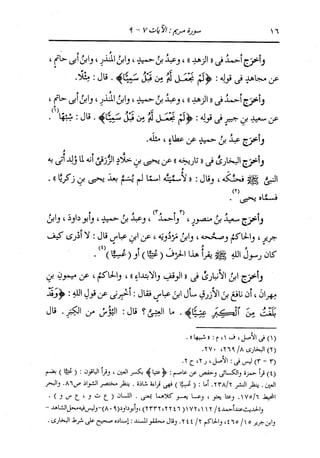 ١٦ سورة مريم : الآيات ٧ - ٩
وأخرَج أحمدُ فى « الزهدِ » ، وعبدُ بنُ حميدٍ ، وابنُ المنذرِ ، وابنُ أبى حاتمٍ ،
عن مجاهدٍ فى قولِه : ﴿لَمْ نَجْعَل لَّهُ مِن قَبْلُ سَمِيًّا﴾ . قال : مِثْلًا .
وأخرَج أحمدُ فى « الزهدِ » ، وعبدُ بنُ حميدٍ ، وابنُ المنذرِ ، وابنُ أبى حاتمٍ ،
عن سعيدِ بنِ جبيرٍ فى قولِه : ﴿لَمْ نَجْعَل لَّهُ مِن قَبْلُ سَمِيًّا﴾ . قال : شبَهًا(١) .
وأخرَج عبدُ بنُ حميدٍ عن عطاءٍ ، مثلَه .
وأخرَج البخارىُّ فى « تاريخِه » عن يحيى بنِ خلَّادٍ الزُّرَقىِّ أنه لما وُلِد أُتى به
النبىُّ ﷺ فحنَّكه ، وقال : « لأُسَمِّيَنَّه اسمًا لم يُسَمَّ بعدَ يحيى بنِ زكريَّا » .
فسمَّاه يحيى(٢) .
وأخرَج سعيدُ بنُ منصورٍ ، (٣وأحمدُ٣) ، وعبدُ بنُ حميدٍ ، وأبو داودَ ، وابنُ
جريرٍ ، والحاكمُ وصحَّحه ، وابنُ مَرْدُويَه ، عن ابنِ عباسٍ قال : لا أدرى كيف
كان رسولُ اللهِ ﷺ يقرأُ هذا الحرفَ (عُتِيًّا) أو (عُسِيًّا)(٤) .
وأخرَج ابنُ الأنبارىِّ فى « الوقفِ والابتداءِ » ، والحاكمُ ، عن ميمونِ بنِ
مِهرانَ ، أن نافعَ بنَ الأزرقِ سأَل ابنَ عباسٍ فقال : أخبِرْنى عن قولِ اللهِ : ﴿وَقَدْ
بَلَغْتُ مِنَ الْكِبَرِ عِتِيًّا﴾ . ما العِتىُّ ؟ قال : البُؤْسُ من الكبَرِ . قال
(١) فى الأصل ، ف ١، م : « شبيها » .
(٢) البخارى ٨/ ٢٦٩، ٢٧٠.
(٣ - ٣) ليس فى : الأصل ، ر ٢، ح ٢.
(٤) قرأ حمزة والكسائى وحفص عن عاصم : ﴿عتيا﴾ بكسر العين ، وقرأ الباقون : (عُتيا) بضم
العين . ينظر النشر ٢/ ٢٣٨. أما : (عُسيا) فهى قراءة شاذة . ينظر مختصر الشواذ ص٨٦. والبحر
المحيط ٦/ ١٧٥. وعتا يعتو ، وعسا يعسو كلاهما بمعنى . اللسان ( ع ت و ، ع س و ) .
وابن جرير ١٥/ ٤٦٥، والحاكم ٢/ ٢٤٤. وقال محققو المسند : إسناده صحيح على شرط البخارى .